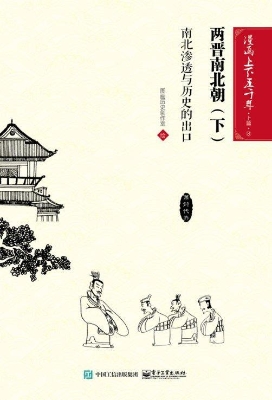 漫画上下五千年
两晋南北朝（下）
南北渗透与历史的出口
中国工信出版集团
电子工业出版社